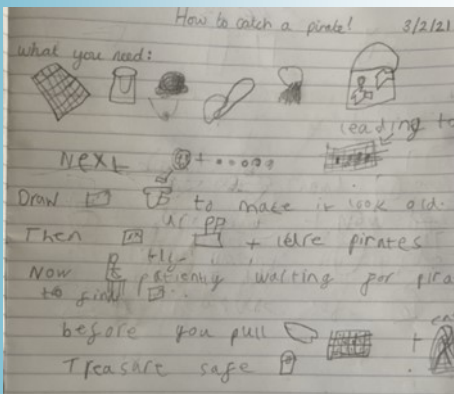 How to catch a pirate! 3/2/21
what you need:
leading to
Next
Draw to make it look old.
Then + lure pirates
Now patiently waiting for pira
to find
before you pull
Treasure safe